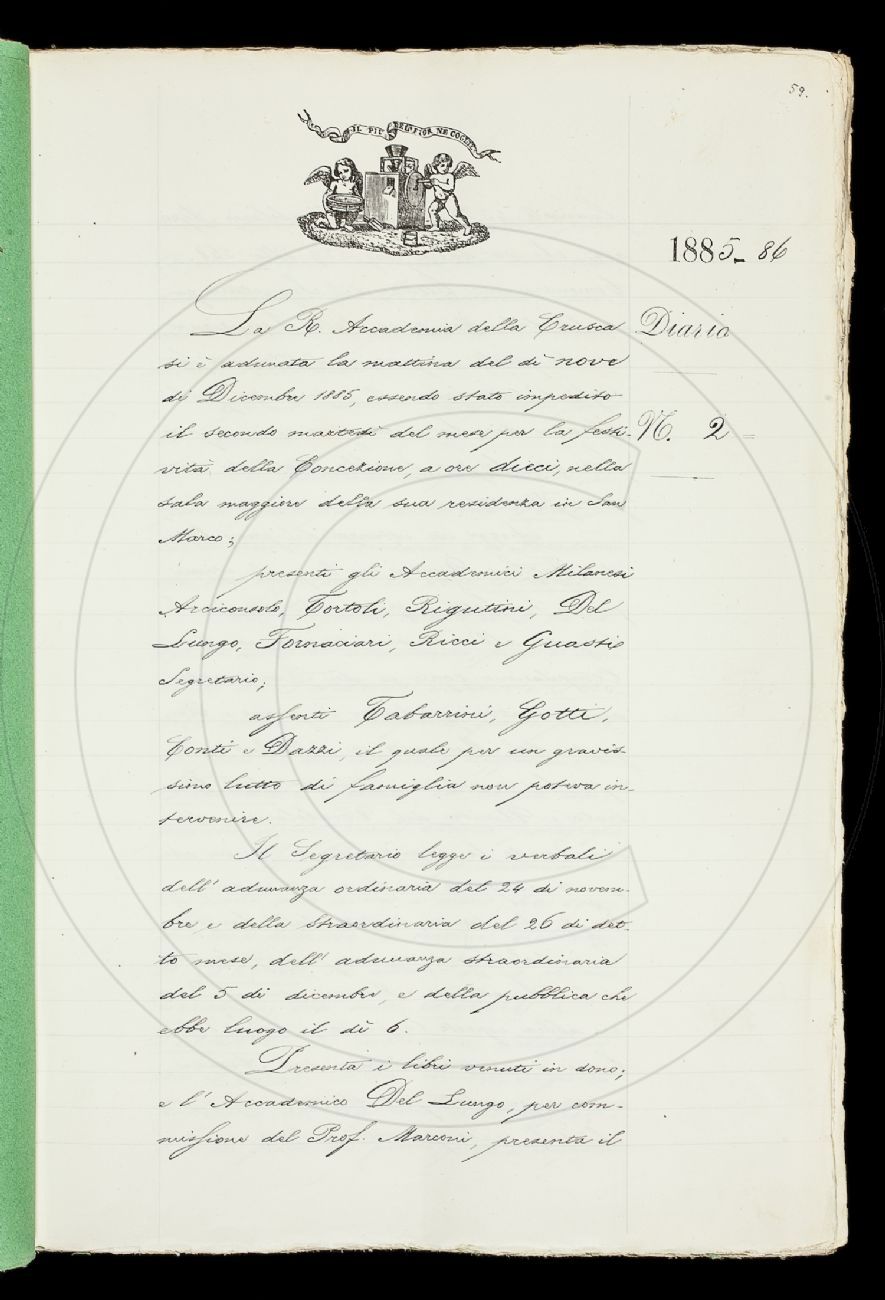 59.
IL PIÙ BEL FIOR NE COGLIE
1885-86
La R. Accademia della Crusca
Diario
si è adunata la mattina del dì nove
di Dicembre 1885, essendo stato impedito
il secondo martedì del mese per la festi-
N. 2
vità della Concezione, a ore dieci, nella
sala maggiore della sua residenza in San
Marco;
presenti gli Accademici Milanesi
Arciconsolo, Tortoli, Rigutini, Del
Lungo, Fornaciari, Ricci e Guasti
Segretario;
assenti Tabarrini, Gotti,
Conti e Dazzi, il quale per un gravis-
simo lutto di famiglia non poteva in-
tervenire.
Il Segretario legge i verbali
dell'adunanza ordinaria del 24 di novem-
bre e della straordinaria del 26 di det-
to mese, dell'adunanza straordinaria
del 5 di dicembre, e della pubblica che
ebbe luogo il dì 6.
Presenta i libri venuti in dono;
e l'Accademico Del Lungo, per com-
missione del Prof. Marconi, presenta il